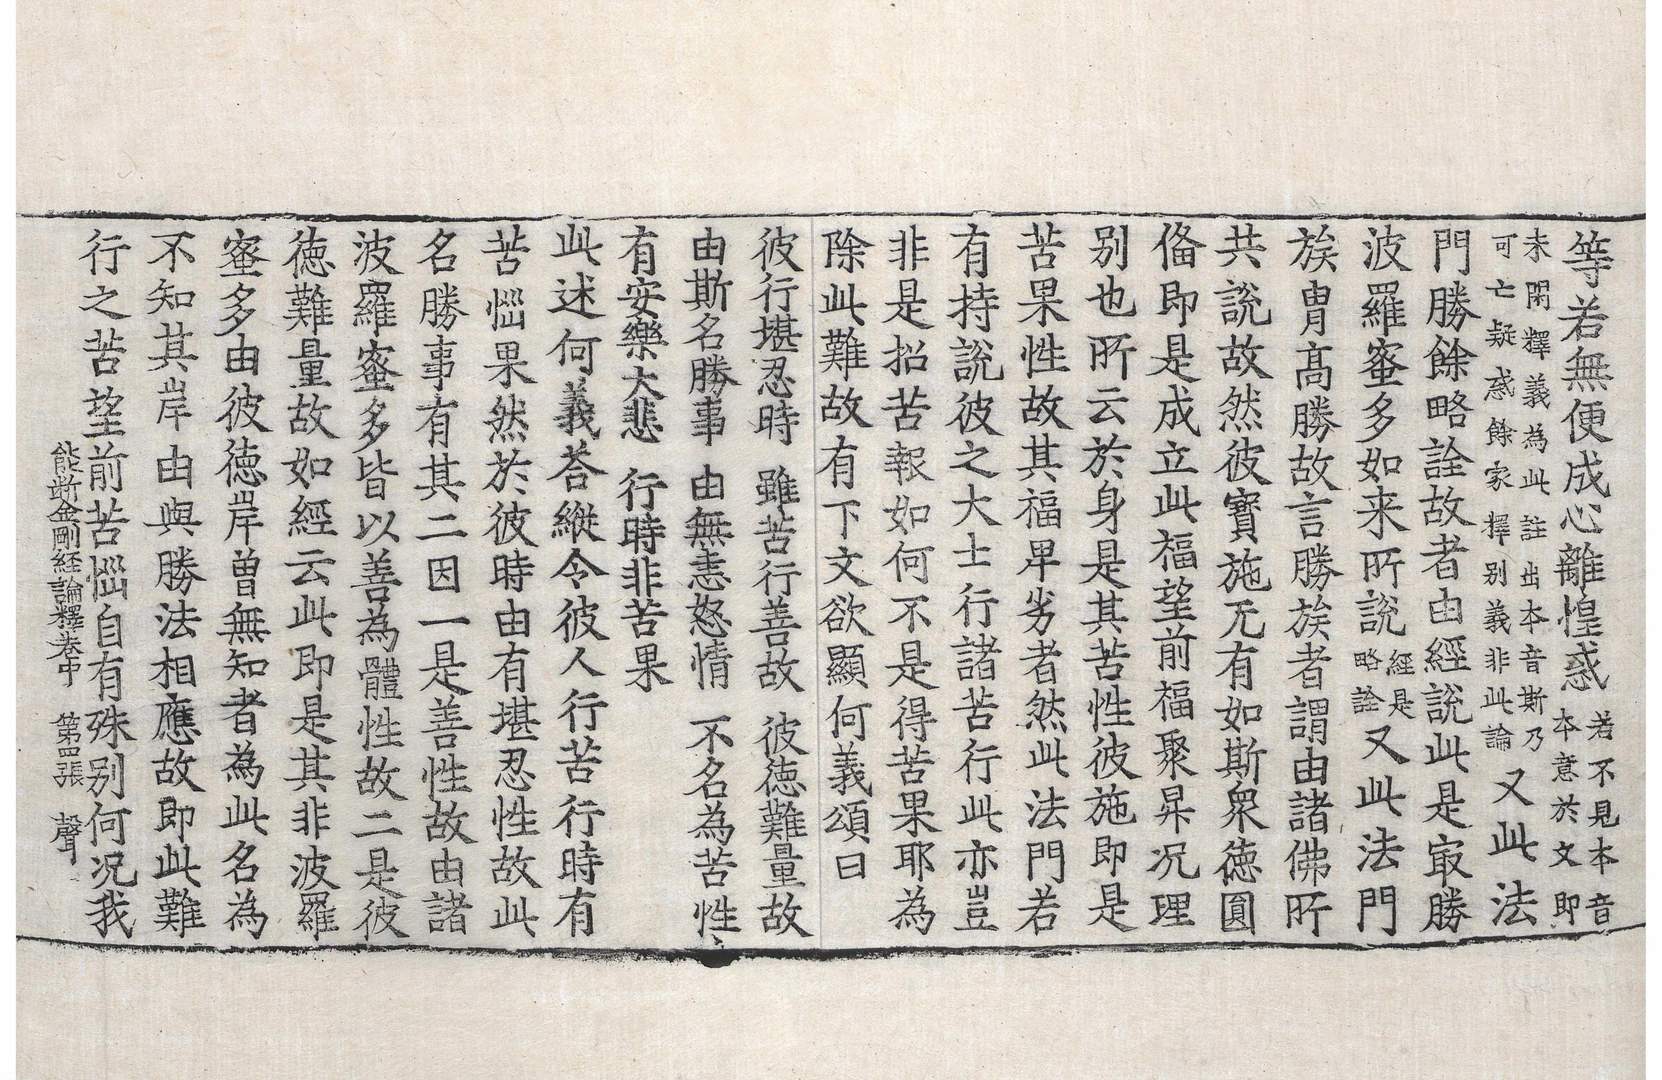 等若無便成心離惶惑若不見本音本意於文即
未閑釋義為此註出本音斯乃可亡疑惑餘家釋別義非此論又此法
門勝餘略詮故者由經說此是冣勝
波羅蜜多如来所說經是略詮又此法門
族胄高勝故言勝族者謂由諸佛所
共說故然彼寶施无有如斯衆徳圓
俻即是成立此福望前福聚昇况理
别也所云於身是其苦性彼施即是
苦果性故其福卑劣者然此法門若
有持說彼之大士行諸苦行此亦豈
非是招苦報如何不是得苦果耶為
除此難故有下文欲顯何義頌曰
彼行堪忍時　雖苦行善故　彼徳難量故
由斯名勝事　由無恚怒情　不名為苦性
有安樂大悲　行時非苦果
此述何義荅縱令彼人行苦行時有
苦惱果然於彼時由有堪忍性故此
名勝事有其二因一是善性故由諸
波羅蜜多皆以善為體性故二是彼
徳難量故如經云此即是其非波羅
蜜多由彼徳岸曽無知者為此名為
不知其岸由與勝法相應故即此難
行之苦望前苦惱自有殊别何况我
能断金剛經論釋卷中　第四張　聲